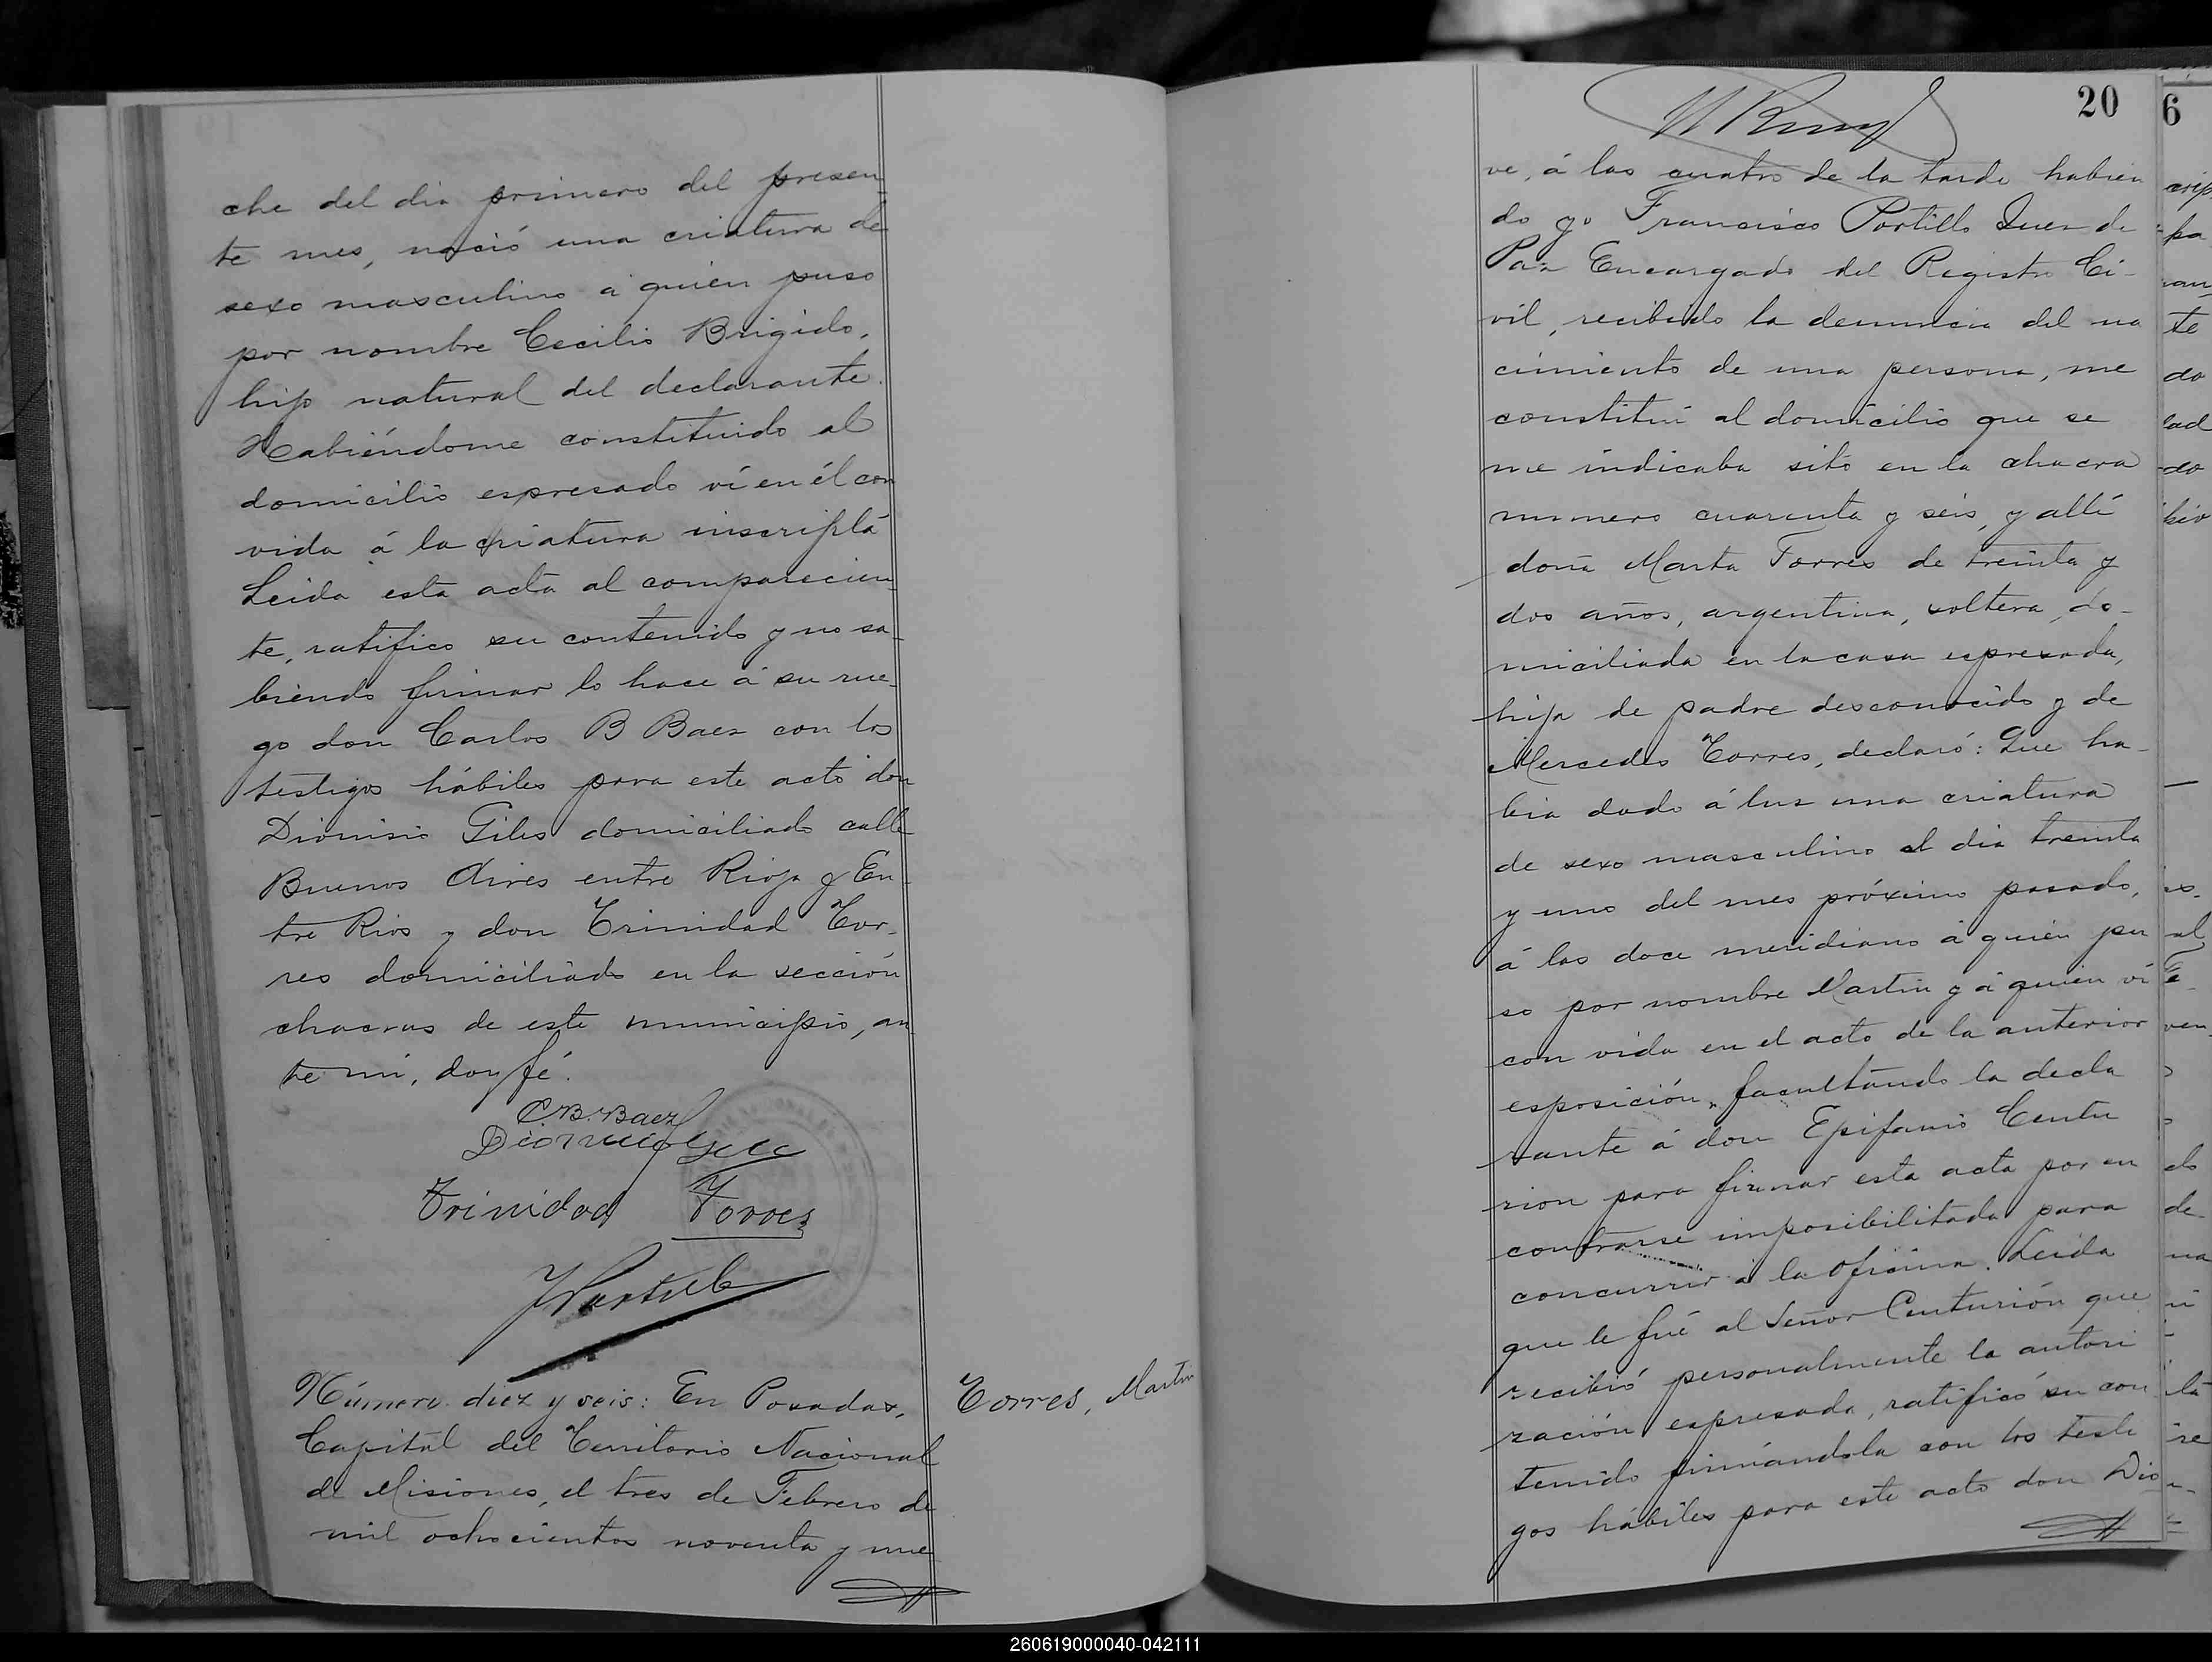 che del dia primero del presen
te mes, nació una criatura de
sexo masculino a quien puso
por nombre Cecilio Brigido,
hijo natural del declarante.
Habiéndome constituido al
domicilio espresado ví en él con
vida á la criatura inscripta
Leida esta acta al comparecien
te, ratifico su contenido y no sa-
biendo firmar lo hace á su rue-
go don Carlos B Baez con los
testigos hábiles para este acto don
Dionisio Giles domiciliado calle
Buenos Aires entre Rioja y En-
tre Rios y don Trinidad Tor-
res domiciliado en la sección
chacras de este municipio, an
te mi, doy fé.
C.B. Baez
Dionicio
Trinidad Torres
Número diez y seis: En Posadas,
Capital del Territorio Nacional
de Misiones, el tres de Febrero de
mil ochocientos noventa y nue
Torres, Martin
20
ve, á las cuatro de la tarde habien
do yo Francisco Portillo Juez de
Paz Encargado del Registro Ci-
vil, recibido la denuncia del na
cimiento de una persona, me
constituí al domicilio que se
me indicaba sito en la chacra
numero cuarenta y seis, y allí
doña Marta Torres de treinta y
dos años, argentina, soltera, do-
miciliada en la casa espresada,
hija de padre desconocido y de
Mercedes Torres, declaró: Que ha-
bia dado á luz una criatura
de sexo masculino el dia treinta
y uno del mes próximo pasado,
á las doce meridiano á quien pu
so por nombre Martin y á quien ví
con vida en el acto de la anterior
esposición, facultando la decla
rante á don Epifanio Centu
rion para firmar esta acta por en
contrarse imposibilitada para
concurrir á la oficina. Leida
que le fué al Señor Centurión que
recibió personalmente la autori
zación espresada, ratificó su con
tenido firmándola con los testi
gos hábiles para este acto don Dio
6
te
do
lad
do
de
na
re
260619000040-042111